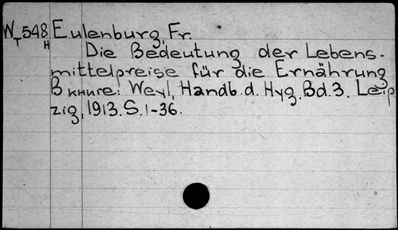 W 548 Eulenburg, Fr.
T H
Die Bedeutung der Lebens-
mittelpreise für die Ernährung
В книге: Weyl, Handb. d. Hyg. Bd. 3. Leip
zig, 1913. S. 1-36.